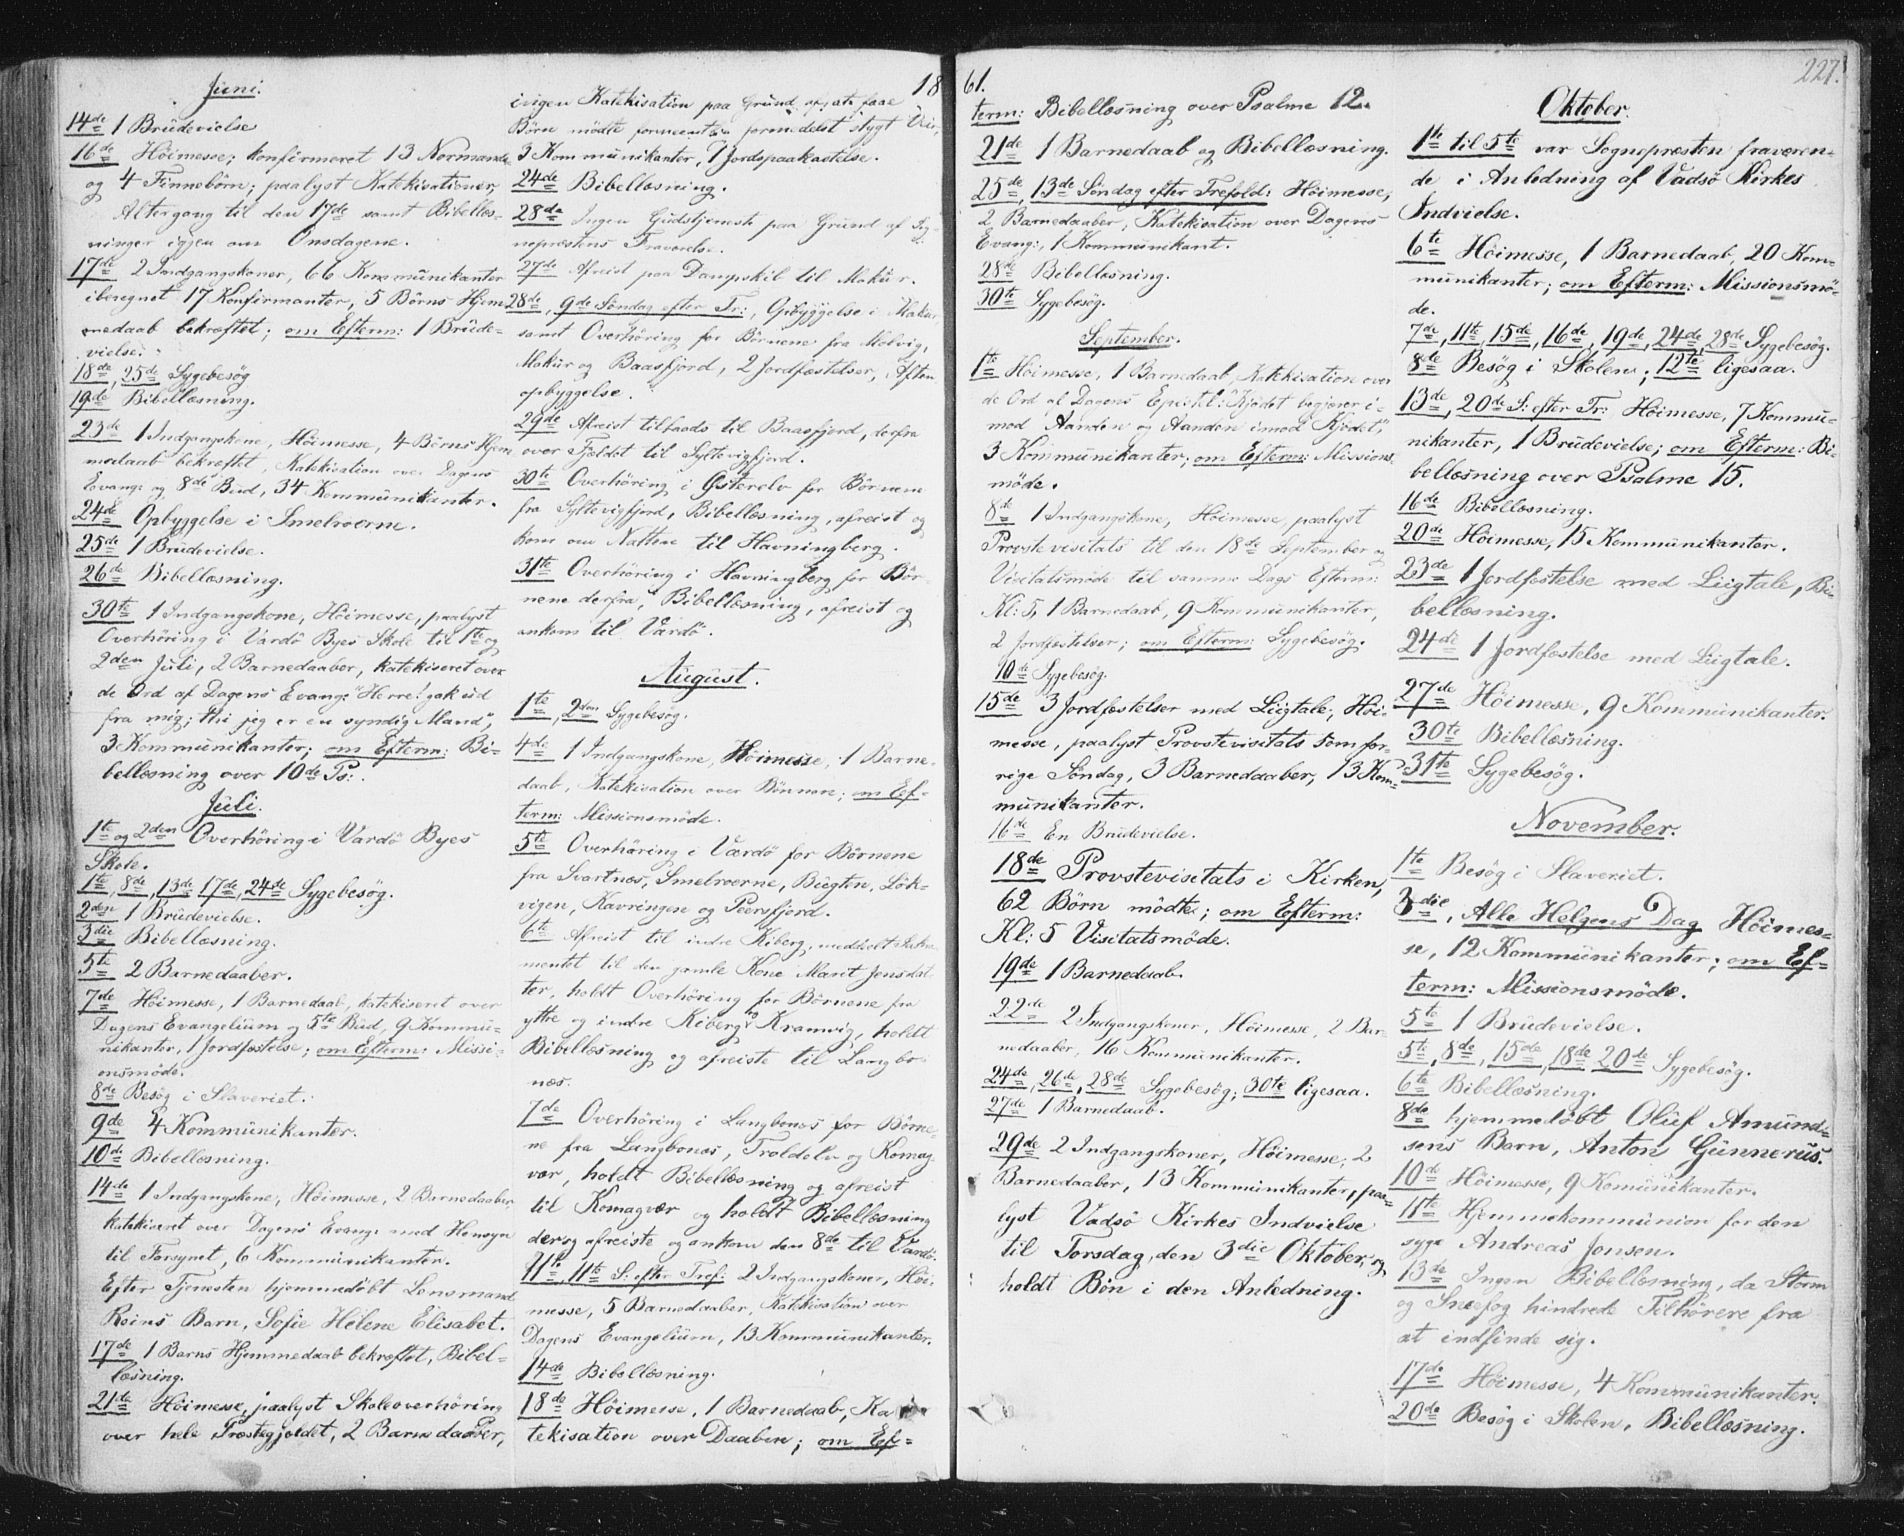 Juni.
14de 1 Brüdevielse
16de Höimesse; konfirmeret 13 Normænds
og 4 Finnebörn; paalyst Katekisationer,
Altergang til den 17de samt Bibellæs-
ninger igjen om Onsdagene.
17de 2 Indgangskoner, 66 Kommünikanter
iberegnet 17 Konfirmanter, 5 Börns Hjem-
medaab bekræftet; om Efterm: 1 Brüde-
vielse.
18de, 25de Sygebesög
19de Bibellæsning.
23de 1 Indgangskone, Höimesse, 4 Börns Hjem
medaab bekræftet, Katekisation over Dagens
Evang: og 8de Bud, 34 Kommünikanter.
24de Opbyggelse i Smelroerne.
25de 1 Brüdevielse.
26de Bibellæsning.
30te 1 Indgangskone, Höimesse, paalyst
Overhöring i Vardö Byes Skole til 1te og
2den Juli, 2 Barnedaaber, katekiseret over
de Ord af Dagens Evang: "Herre! gak üd
fra mig; thi jeg er en syndig Mand",
3 Kommünikanter; om Efterm: Bi-
bellæsning over 10de Ps:.
Jüli.
1te og 2den Overhöring i Vardö Byes
Skole.
1te, 8de, 13de 17de, 24de Sygebesög.
2den 1 Brüdevielse.
3die Bibellæsning.
5te 2 Barnedaaber.
7de Höimesse, 1 Barnedaab, katekiseret over
Dagens Evangelium og 5te Bud, 9 Kommü-
nikanter, 1 Jordfæstelse; om Efterm: Missi-
onsmöde.
8de Besög i Slaveriet.
9de 4 Kommünikanter.
10de Bibellæsning.
14de 1 Indgangskone, Höimesse, 2 Barnedaaber,
katekiseret over Dagens Evang: med Hensyn
til Forsynet, 6 Kommünikanter.
Efter Tjenesten hjemmedöbt Lensmand
Reins Barn, Sofie Helene Elisabet.
17de 1 Barns Hjemmedaab bekræftet, Bibel-
læsning.
21de Höimesse, paalyst Skoleoverhöring
over hele Præstegjældet, 2 Barnedaaber,
18
ingen Katekisation paa Grund af, at faae
Börn mödte formedelst stygt Veir,
3 Kommünikanter, 1 Jordspaakastelse.
24de Bibellæsning.
28de Ingen Gudstjeneste paa Grund af Sog-
nepræstens Fraværelse.
27de Afreist paa Dampskib til Makür.
28de, 9de Söndag efter Tr:, Opbyggelse i Makur,
samt Overhöring for Börnene fra Molvig,
Makür og Baasfjord, 2 Jordfæstelser, Aften
opbyggelse.
29de Afreist tilfods til Baasfjord, derfra
over Fjeldet til Syltevigfjord.
30te Overhöring i Ysterelv for Börnene
fra Syltevigfjord, Bibellæsning, afreist og
kom om Natten til Havningberg.
31te Overhöring i Havningberg for Bör-
nene derfra, Bibellæsning, afreist og
ankom til Vardö.
August.
1te, 2den Sygebesög.
4de 1 Indgangskone, Höimesse, 1 Barne-
daab, Katekisation over Bönnen; om Ef-
term: Missionsmöde.
5te Overhöring i Vardö for Börnene
fra Svartnæs, Smelroerne, Bügten, Lök-
vigen, Kavringen og Peersfjord.
6te Afreist til indre Kiberg, meddeelt Sakra-
mentet til den gamle Kone Marit Jonsdat-
ter, holdt Overhöring for Börnene fra
ydtre og indre Kiberg og Kramvig, holdt
Bibellæsning og afreiste til Langbu-
næs.
7de Overhöring i Langbunæs for Börne-
ne fra Langbunæs, Troldelv og Komag-
vær, holdt Bibellæsning og afreist
til Komagvær og holdt Bibellæsning
der og afreiste og ankom den 8de til Vardö.
11te, 11te S: efter Tref: 2 Indgangskoner, Höi-
messe, 5 Barnedaaber, Katekisation over
Dagens Evangelium, 13 Kommünikanter.
14de Bibellæsning.
18de Höimesse, 1 Barnedaab, Ka-
tekisation over Daaben; om Ef-
61.
227.
term: Bibellæsning over Psalme 12.
21de 1 Barnedaab og Bibellæsning.
25de, 13de Söndag efter Trefold: Höimesse,
2 Barnedaaber, Katekisation over Dagens
Evang:, 1 Kommünikant.
28de Bibellæsning.
30te Sygebesög.
September.
1te Höimesse, 1 Barnedaab, Katekisation over
de Ord af Dagens Epistel: "Kjödet begjerer i-
mod Aanden og Aanden imod Kjödet",
3 Kommünikanter; om Efterm: Missions-
möde.
8de 1 Indgangskone, Höimesse, paalyst
Provstevisitats til den 18de September og
Visitatsmöde til samme Dags Efterm:
Kl: 5, 1 Barnedaab, 9 Kommünikanter,
2 Jordfæstelser; om Efterm: Sygebesög.
10de Sygebesög.
15de 3 Jordfæstelser med Liigtale, Höi-
messe, paalyst Provstevisitats som for-
rige Söndag, 3 Barnedaaber, 13 Kom-
munikanter.
16de En Brüdevielse.
18de Provstevisitats i Kirken,
62 Börn mödte; om Efterm:
Kl: 5 Visitatsmöde.
19de 1 Barnedaab.
22de 2 Indgangskoner, Höimesse, 2 Bar-
nedaaber, 16 Kommünikanter.
24de, 26de, 28de Sygebesög; 30te ligesaa.
27de 1 Barnedaab.
29de 2 Indgangskoner, Höimesse, 2
Barnedaaber, 13 Kommünikanter, paa-
lyst Vadsö Kirkes Indvielse
til Torsdag, den 3die Oktober, og
holdt Bön i den Anledning.
Oktober.
1te til 5te var Sognepræsten fraværen-
de i Anledning af Vadsö Kirkes
Indvielse.
6te Höimesse, 1 Barnedaab, 20 Kom-
münikanter; om Efterm: Missionsmö-
de.
7de, 11te, 15de, 16de, 19de, 24de 28de Sygebesög.
8de Besög i Skolen; 12te ligesaa.
13de, 20de S: efter Tr: Höimesse, 7 Kommü-
nikanter, 1 Brüdevielse; om Efterm: Bi-
bellæsning over Psalme 15.
16de Bibellæsning.
20de Höimesse, 15 Kommünikanter.
23de 1 Jordfæstelse med Liigtale, Bi-
bellæsning.
24de 1 Jordfæstelse med Liigtale.
27de Höimesse, 9 Kommünikanter.
30te Bibellæsning.
31te Sygebesög.
November.
1te Besög i Slaveriet.
3die, Alle Helgens Dag Höimes-
se, 12 Kommünikanter; om Ef-
term: Missionsmöde.
5te 1 Brüdevielse.
5te, 8de, 15de, 18de 20de Sygebesög.
6te Bibellæsning.
8de hjemmedöbt Olüf Amund-
sens Barn, Anton Günnerüs.
10de Höimesse, 9 Komünikanter.
11te Hjemmekommunion for den
syge Andreas Jonsen.
13de Ingen Bibellæsning, da Storm
og Sneefog hindrede Tilhörere fra
at indfinde sig.
17de Höimesse, 4 Kommünikanter.
20de Besög i Skolen, Bibellæsning.